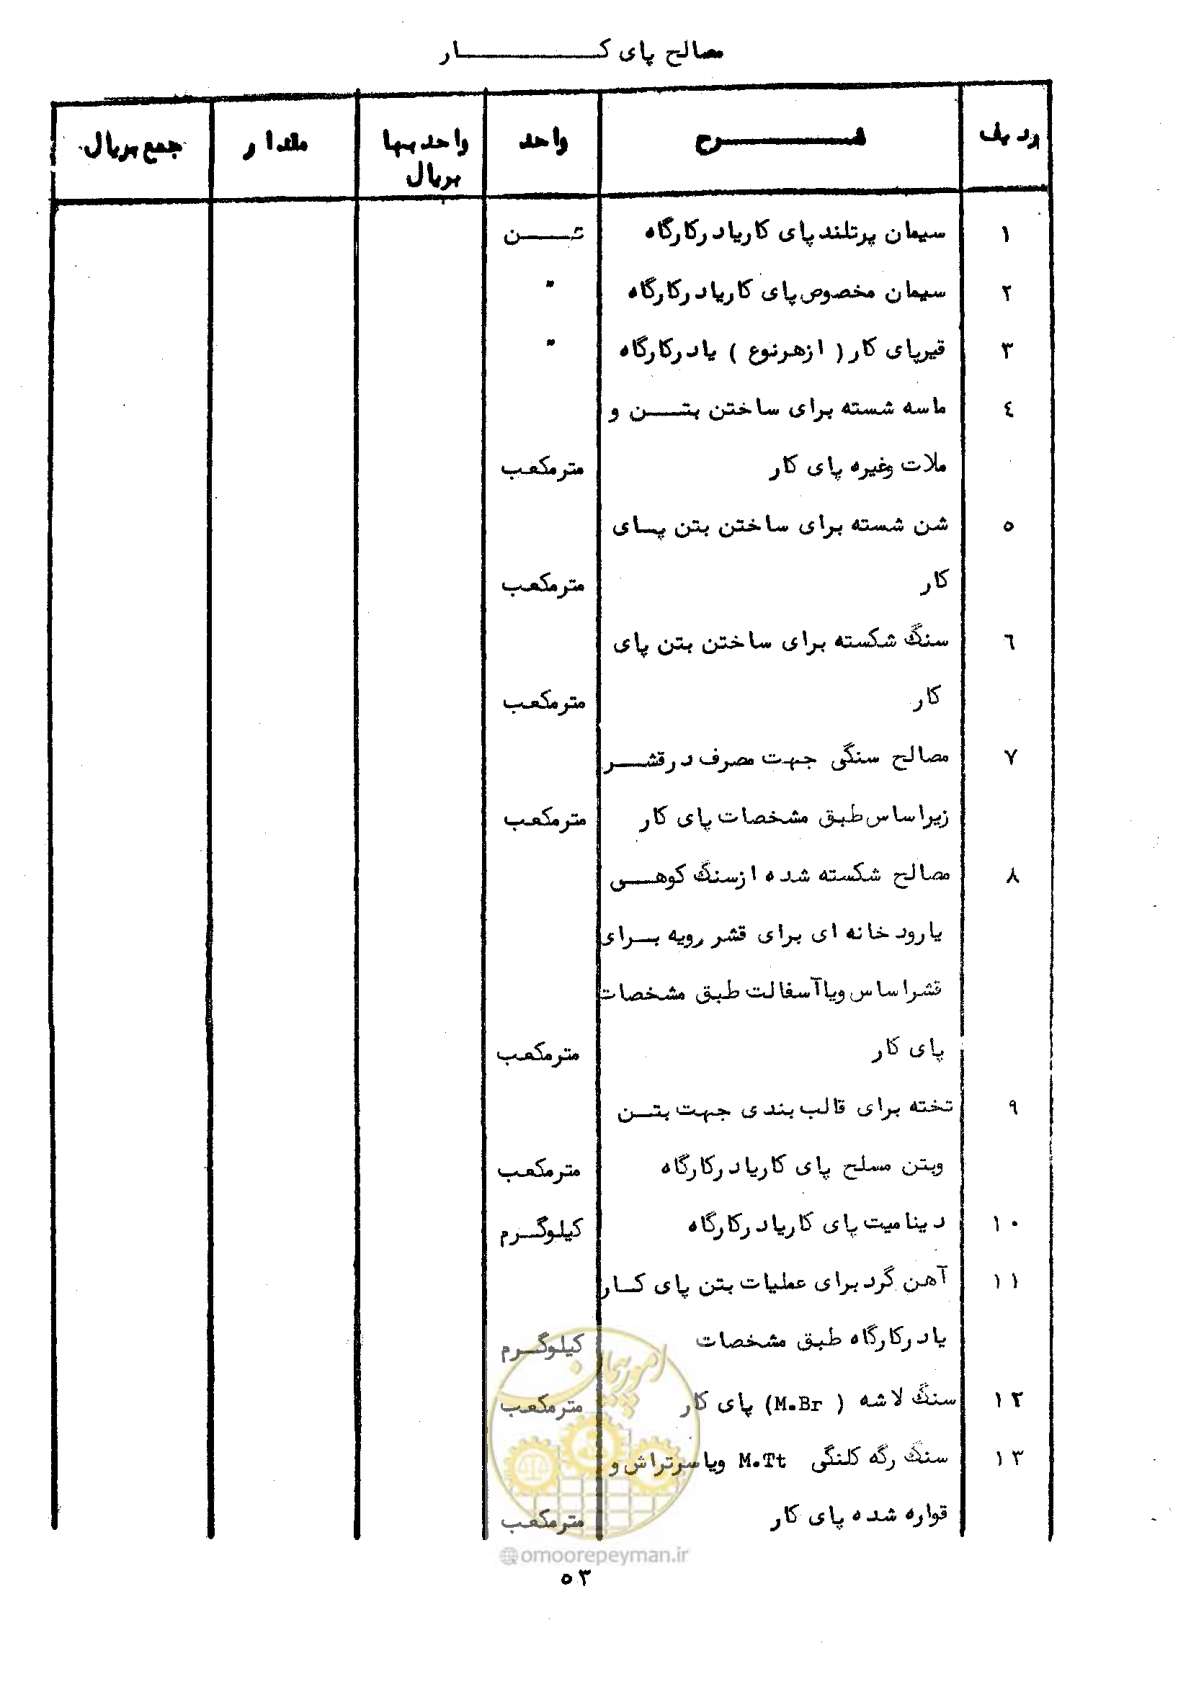 مصالح پای کـــــــار
ردیف شـــــــرح واحد واحدبها بریال مقدار جمع بریال
۱ سیمان پرتلند پای کاریادرکارگاه تـــن
۲ سیمان مخصوص پای کاریادرکارگاه "
۳ قیرپای کار ( ازهرنوع ) یادرکارگاه "
٤ ماسه شسته برای ساختن بتـــن و
ملات وغیره پای کار مترمکعب
٥ شن شسته برای ساختن بتن پـای
کار مترمکعب
٦ سنگ شکسته برای ساختن بتن پای
کار مترمکعب
۷ مصالح سنگی جهت مصرف درقشـــر
زیراساس طبق مشخصات پای کار مترمکعب
۸ مصالح شکسته شده ازسنگ کوهـــی
یارودخانه ای برای قشر رویه بـرای
قشراساس ویاآسفالت طبق مشخصات
پای کار مترمکعب
۹ تخته برای قالب بندی جهت بتـن
وبتن مسلح پای کاریادرکارگاه مترمکعب
۱۰ دینامیت پای کاریادرکارگاه کیلوگـرم
۱۱ آهن گرد برای عملیات بتن پای کـار
یادرکارگاه طبق مشخصات کیلوگـرم
۱۲ سنگ لاشه ( M.Br) پای کار مترمکعب
۱۳ سنگ رگه کلنگی M.Tt ویاسرتراش و
قواره شده پای کار مترمکعب
امور پیمان
@omoorepeyman.ir
٥۳